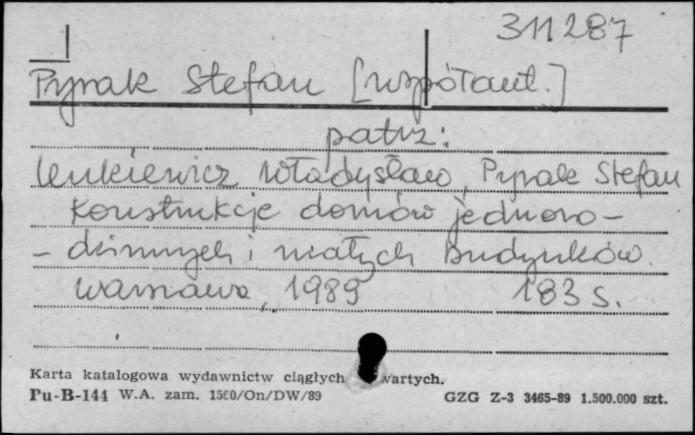 311287
Pyrak Stefan [współaut.]
patrz:
Lenkiewicz Władysław, Pyrak Stefan
Konstrukcje domów jednoro-
- dzinnych i małych budynków.
Warszawa, 1989 183 s.
Karta katalogowa wydawnictw ciągłych wartych.
Pu-B-144 W.A. zam. 1560/On/DW/89 GZG Z-3 3465-89 1.500.000 szt.